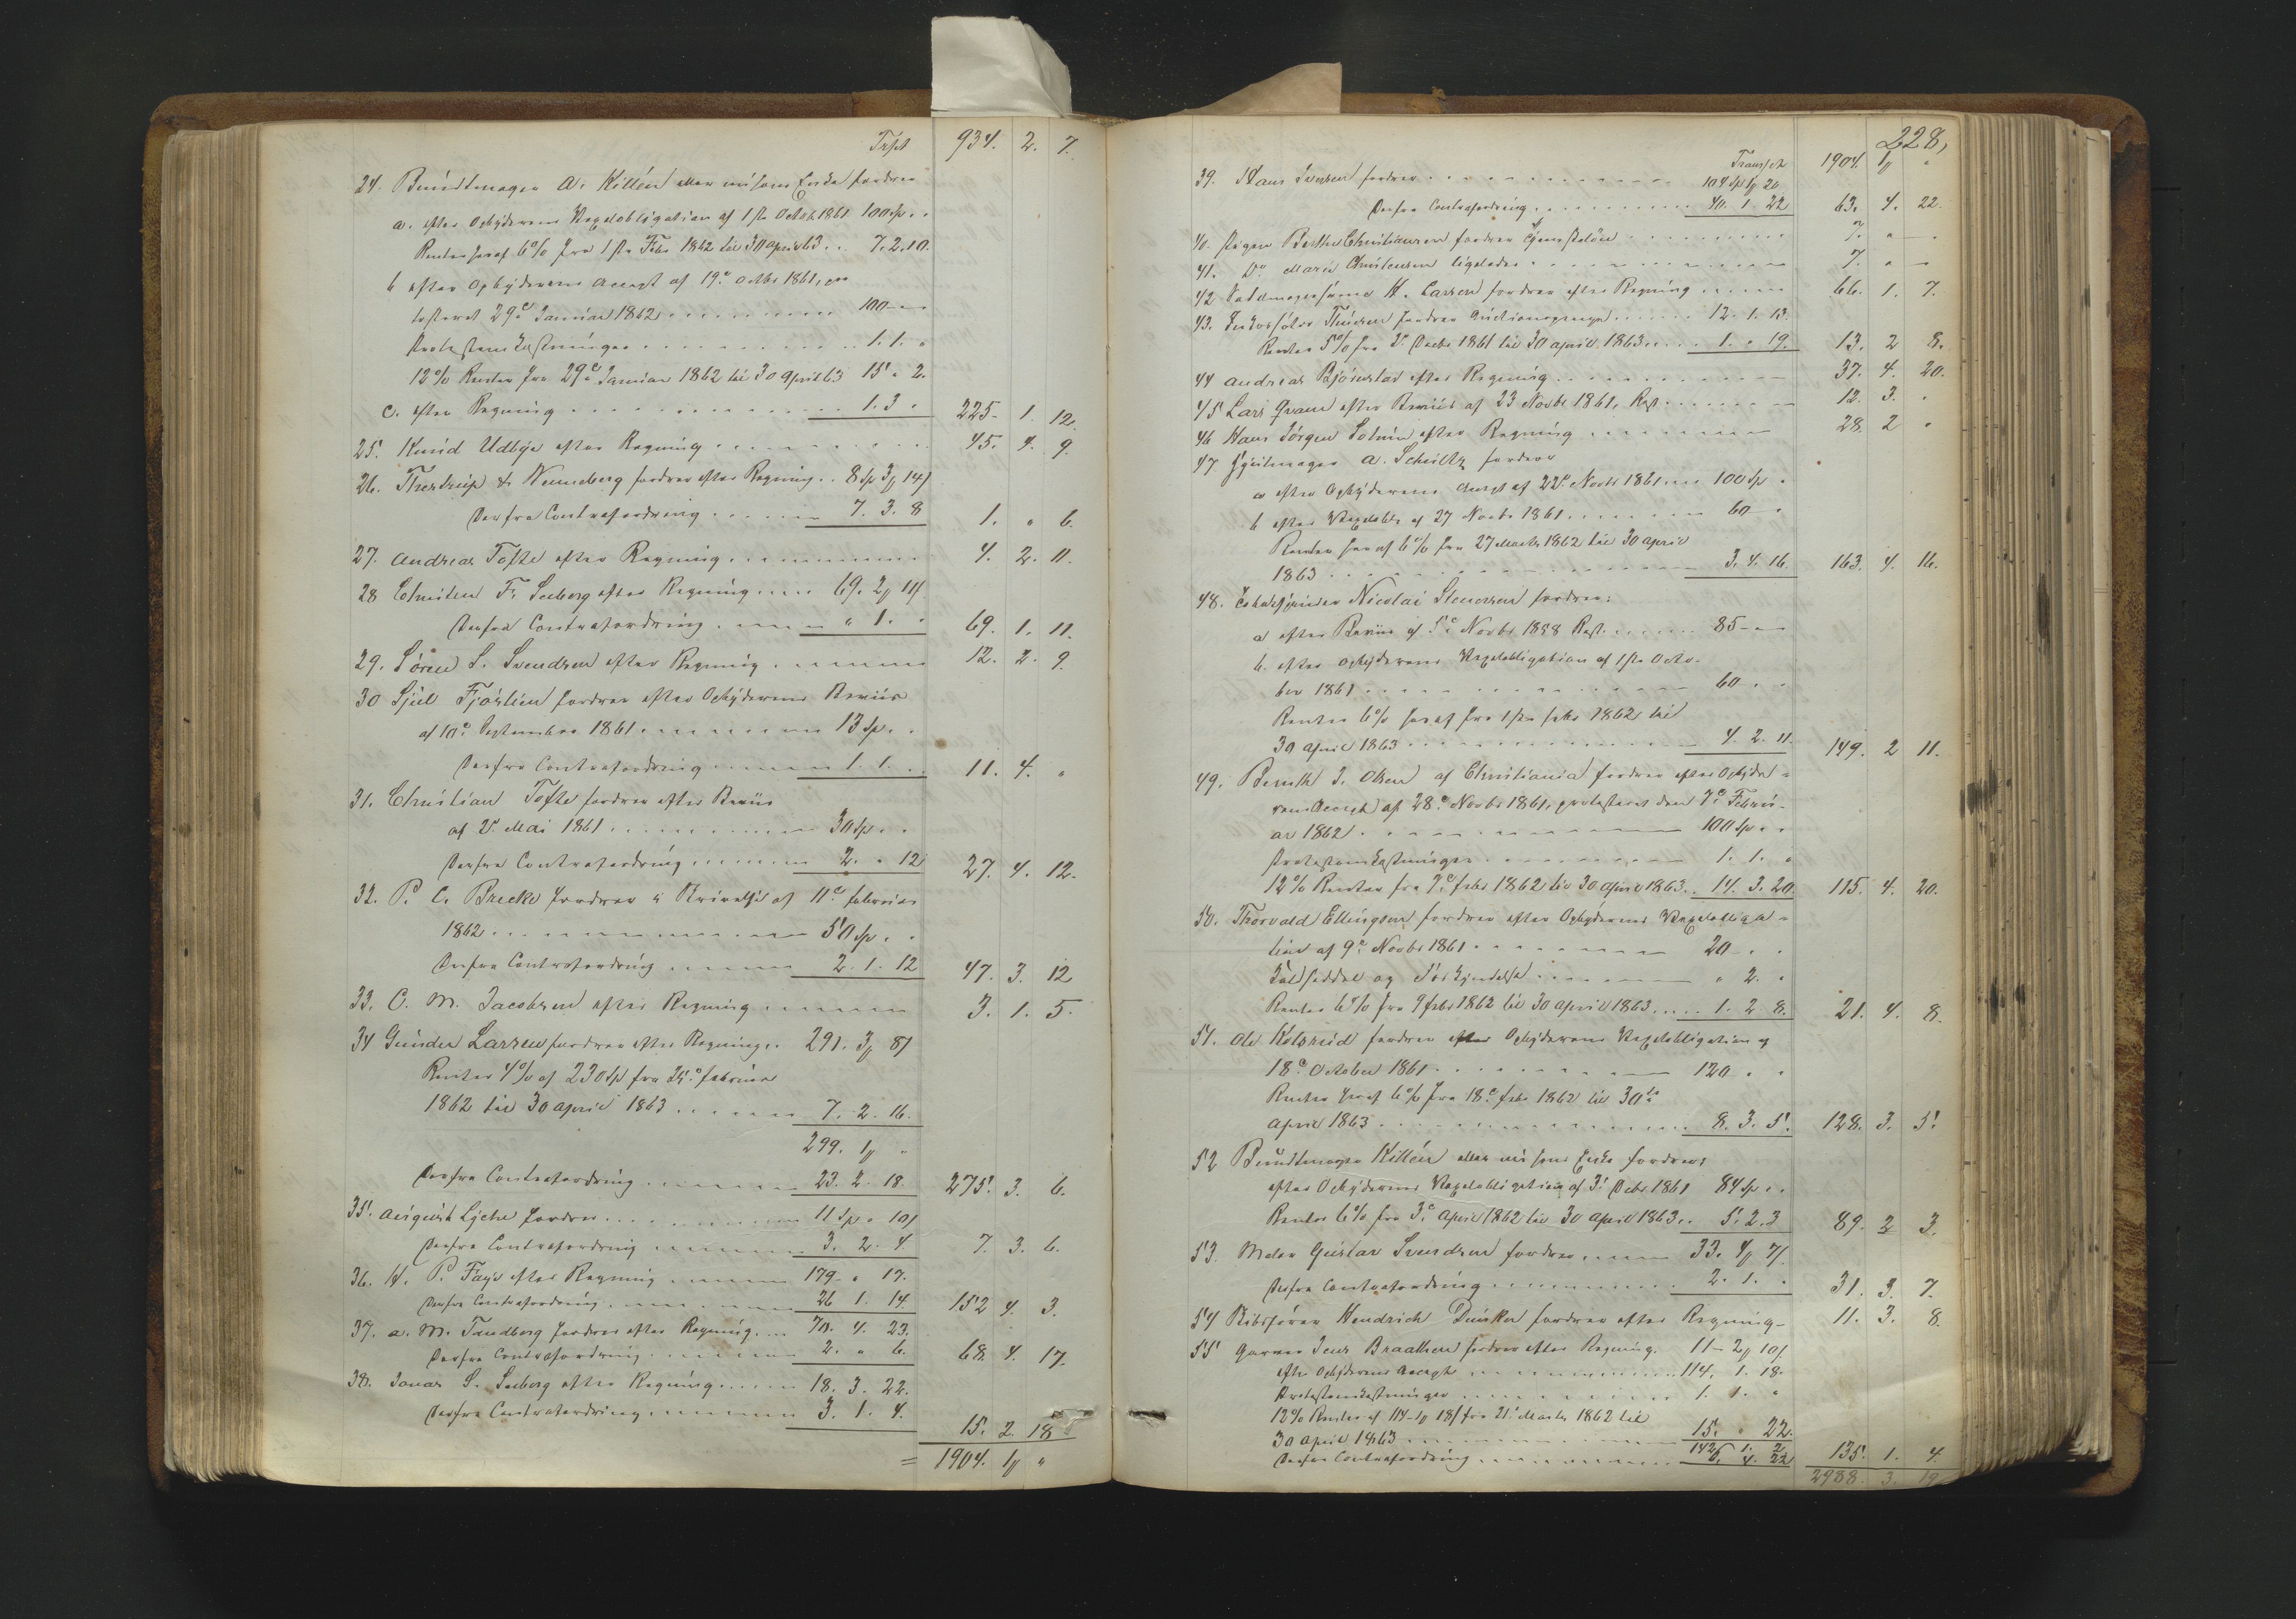 Trspt 934. 2. 7.
24. Bundtmager A. Killén eller nu hans Enke fordrer
a. efter Opbyderens Vexelobligation af 1ste Octob. 1861 100 Sp. "
Renter heraf 6% fra 1ste Febr 1862 til 30 April 63 .. 7. 2. 10.
b efter Opbyderens Accept af 19de Octbr 1861, pro
testeret 29de Januar 1862 100 - -
Protestomkostninger 1. 1. "
12% Renter fra 29de Januar 1862 til 30 April 63 15 " 2.
c. efter Regning 1. 3 " 225 - 1. 12.
25. Knud Udbye efter Regning 45. 4. 9.
26. Therstrup & Wenneberg fordrer efter Regning .. 8 Sp 3 14
Derfra Contrafordring 7. 3. 8 1. " 6.
27. Andreas Tofte efter Regning 4. 2. 11.
28 Christen F. Seeberg efter Regning 69. 2 11
Derfra Contrafordring " 1. " 69. 1. 11.
29. Sören S. Svendsen efter Regning 12. 2. 9.
30 Sjul Fjörlien fordrer efter Opbyderens Beviis
af 10de September 1861 13 Sp. "
Derfra Contrafordring 1. 1. " 11. 4. "
31. Christian Tofte fordrer efter Beviis
af 2. Mai 1861 30 Sp. "
Derfra Contrafordring 2. " 12 27. 4. 12.
32. P. C. Brecke fordrer i Skrivelse af 11de Februar
1862 50 Sp. "
Derfra Contrafordring 2. 1. 12 47. 3. 12
33. C. M. Jacobsen efter Regning 3. 1. 5.
34 Gunder Larsen fordrer efter Regning .. 291. 3 8
Renter 4% af 230 Sp fra 25de Februar
1862 til 30 April 1863 7. 2. 16.
299. 1 "
Derfra Contrafordring 23. 2. 18. 275. 3. 6.
35. August Lyche fordrer 11 Sp " 10
Derfra Contrafordring 3. 2. 4. 7. 3. 6.
36. H. P. Faye efter Regning 179 " 17.
Derfra Contrafordring 26 1. 14 152 4. 3.
37. A. M. Tandberg fordrer efter Regning 70. 4. 23.
Derfra Contrafordring 2. " 6. 68. 4. 17.
38. Jonas S. Seeberg efter Regning 18. 3. 22.
Derfra Contrafordring 3. 1. 4.
15. 2. 18
= 1904. 1 "
228,
Transpt 1904. 1 "
39. Hans Iversen fordrer 104 Sp 1 20
Derfra Contrafordring 40. 1. 22 63. 4. 22.
40. Pigen Berthe Christiansen fordrer Tjenesteløn 7. " "
41. Do Marie Christensen ligeledes 7. " "
42 Sadelmagersvend H. Larsen fordrer efter Regning 66. 1. 7.
43. Thúesen fordrer Auctionspenge 12. 1. 13.
Renter 5% fra 2. Decbr 1861 til 30 April 1863 1. " 19. 13. 2 8.
44 Andreas Bjørnstad efter Regning 37. 4. 20.
45 Lars Qvam efter Beviis af 23 Novbr 1861, Rest 12. 3. "
46 Hans Jörgen Solum efter Regning 28. 2 "
47 A. Schultz fordrer
a efter Opbyderens Accept af 22. Novbr 1861 100 Sp "
b efter Vexelobl. af 27 Novbr 1861 60 "
Renter heraf 6% fra 27 Marts 1862 til 30 April
1863 3. 4. 16. 163. 4. 16.
48. Nicolai Stenersen fordrer:
a efter Beviis af 5te Novbr 1858 Rest 85 - -
b. efter Opbyderens Vexelobligation af 1ste Octo-
ber 1861 60 - "
Renter 6% heraf fra 1ste Febr 1862 til
30 April 1863 4. 2. 11. 149. 2 11.
49. Bernth J. Olsen af Christiania fordrer efter Opbyde-
rens Accept af 28de Novbr 1861, protesteret den 7de Febru-
ar 1862 100 Sp " "
Protestomkostninger 1. 1. "
12% Renter fra 7de Febr 1862 til 30 April 1863 .. 14. 3. 20. 115. 4. 20.
50. Thorvald Ellingsen fordrer efter Opbyderens Vexelobliga-
tion af 9de Novbr 1861 20 . "
Kaldseddel og Forkyndelse " 2. "
Renter 6% fra 9 Febr 1862 til 30 April 1863 1. 2 8. 21. 4. 8.
51. Ole Kolsrud fordrer efter Opbyderens Vexelobligation af
18de October 1861 120 " "
Renter heraf 6% fra 18de Febr 1862 til 30te
April 1863 8. 3. 5. 128. 3. 5.
52 Bundtmager Killén eller nu hans Enke fordrer:
efter Opbyderens Vexelobligation af 3. Decbr. 1861 84 Sp " "
Renter 6% fra 3de April 1862 til 30 April 1863 .. 5. 2. 3 89. 2 3.
53. Maler Gustav Svendsen fordrer 33. 4 7
Derfra Contrafordring 2. 1. " 31. 3. 7.
54 Hendrich Dunker fordrer efter Regning 11. 3. 8.
55 Garver Jens Braathen fordrer efter Regning. 11 - 2 10
efter Opbyderens Accept 114. 1. 18.
Protestomkostninger 1. 1. "
12% Renter af 114 - 1 18 fra 21. Marts 1862 til
30 April 1863 15. " 22.
142. 1. 2
Derfra Contrafordring 6. 4. 22 135. 1. 4.
2988. 3. 19